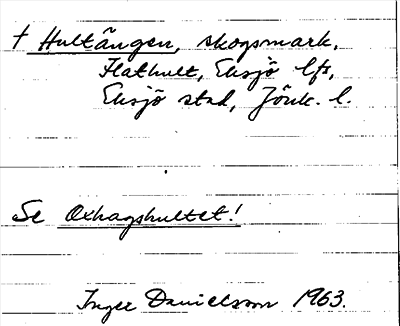 † Hultängen, skogsmark,
Flathult, Eksjö lfs,
Eksjö stad, Jönk. l.
Se Oxhagshultet!
Inger Danielsson 1963.